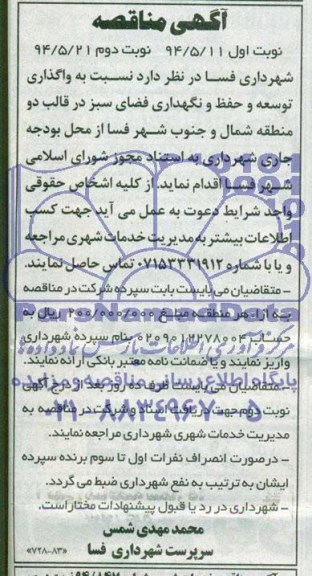 آگهی مناقصه
نوبت اول ۹۴/۵/۱۱ نوبت دوم ۹۴/۵/۲۱
شهرداری فسا در نظر دارد نسبت به واگذاری
توسعه و حفظ و نگهداری فضای سبز در قالب دو
منطقه شمال و جنوب شهر فسا از محل بودجه
جاری شهرداری به استناد مجوز شورای اسلامی
شهر فسا اقدام نماید. از کلیه اشخاص حقوقی
واجد شرایط دعوت به عمل می آید جهت کسب
اطلاعات بیشتر به مدیریت خدمات شهری مراجعه
و یا با شماره ۰۷۱۵۳۳۳۱۹۱۲ تماس حاصل نمایند.
– متقاضیان می‌بایست بابت سپرده شرکت در مناقصه
به ازاء هر منطقه مبلغ ۲۰۰/۰۰۰/۰۰۰ ریال به
حساب بنام سپرده شهرداری
واریز نمایند و یا ضمانت نامه معتبر بانکی ارائه نمایند.
– متقاضیان می‌بایست ظرف ده روز بعد از درج آگهی
نوبت دوم جهت دریافت اسناد و شرکت در مناقصه به
مدیریت خدمات شهری شهرداری مراجعه نمایند.
– درصورت انصراف نفرات اول تا سوم برنده سپرده
ایشان به ترتیب به نفع شهرداری ضبط می گردد.
– شهرداری در رد یا قبول پیشنهادات مختار است.
محمد مهدی شمس
سرپرست شهرداری فسا «۷۲۸-۸۳»